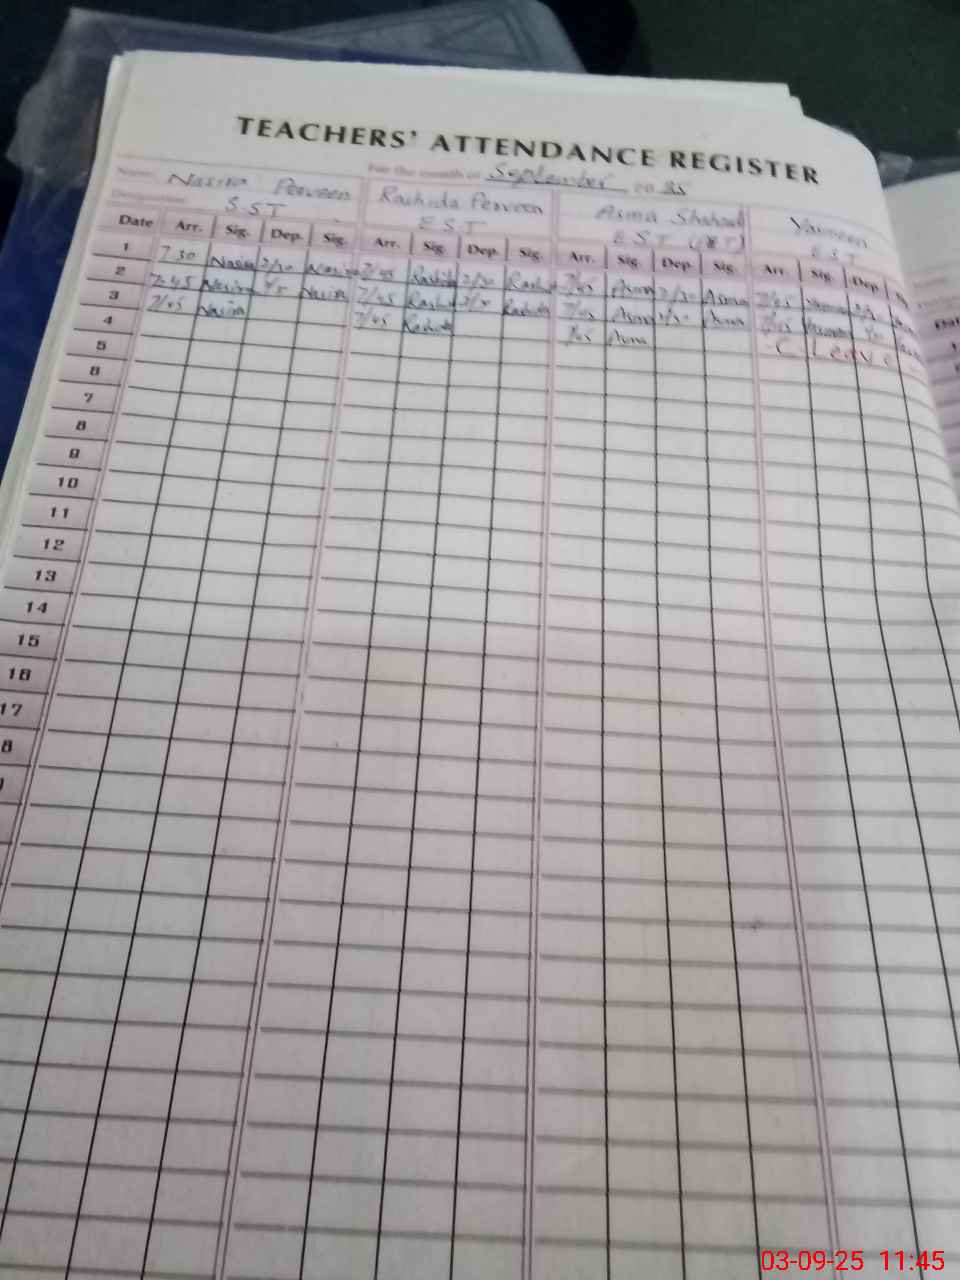 TEACHERS' ATTENDANCE REGISTER
Name For the month of September 20 25
Nasira Perveen Rashida Perveen Asma Yasmeen
Designation S.ST E.S.T E.S.T E.S.T
Date Arr. Sig. Dep. Sig. Arr. Sig. Dep. Sig. Arr. Sig. Dep. Sig. Arr. Sig. Dep.
1 7 30 Nasira Nasira 7/45 Rashida 2/30 7/45 Asma 2/30 Asma 7/45
2 7:45 Nasira Nasira 7/45 Rashida Rashida 7/45 Asma Asma 7/45
3 7/45 Nasira 7/45 Rashida 7/45 Asma C Leave
4
5
6
7
8
9
10
11
12
13
14
15
16
17
8
03-09-25 11:45